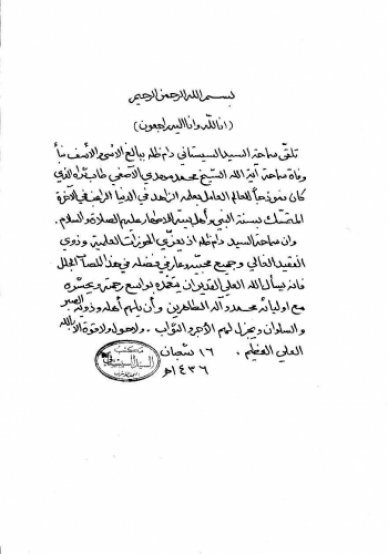 بسم الله الرحمن الرحيم
(انا لله وانا اليه راجعون)
تلقى سماحة السيد السيستاني دام ظله ببالغ الأسى والأسف نبأ
وفاة سماحة آية الله الشيخ محمد مهدي الآصفي طاب ثراه الذي
كان نموذجاً للعالم العامل بعلمه الزاهد في الدنيا الراغب في الآخرة
المتمسك بسنة النبي وأهل بيته الاطهار عليهم الصلاة والسلام.
وان سماحة السيد دام ظله اذ يعزي الحوزات العلمية وذوي
الفقيد الغالي وجميع محبيه وعارفي فضله في هذا المصاب الجلل
فانه يسأل الله العلي القدير ان يتغمده بواسع رحمته ويحشره
مع اوليائه محمد وآله الطاهرين وأن يلهم أهله وذويه الصبر
والسلوان ويجزل لهم الأجر والثواب. ولا حول ولا قوة الا بالله
العلي العظيم. ١٦ شعبان
١٤٣٦هـ
مكتب
السيد السيستاني